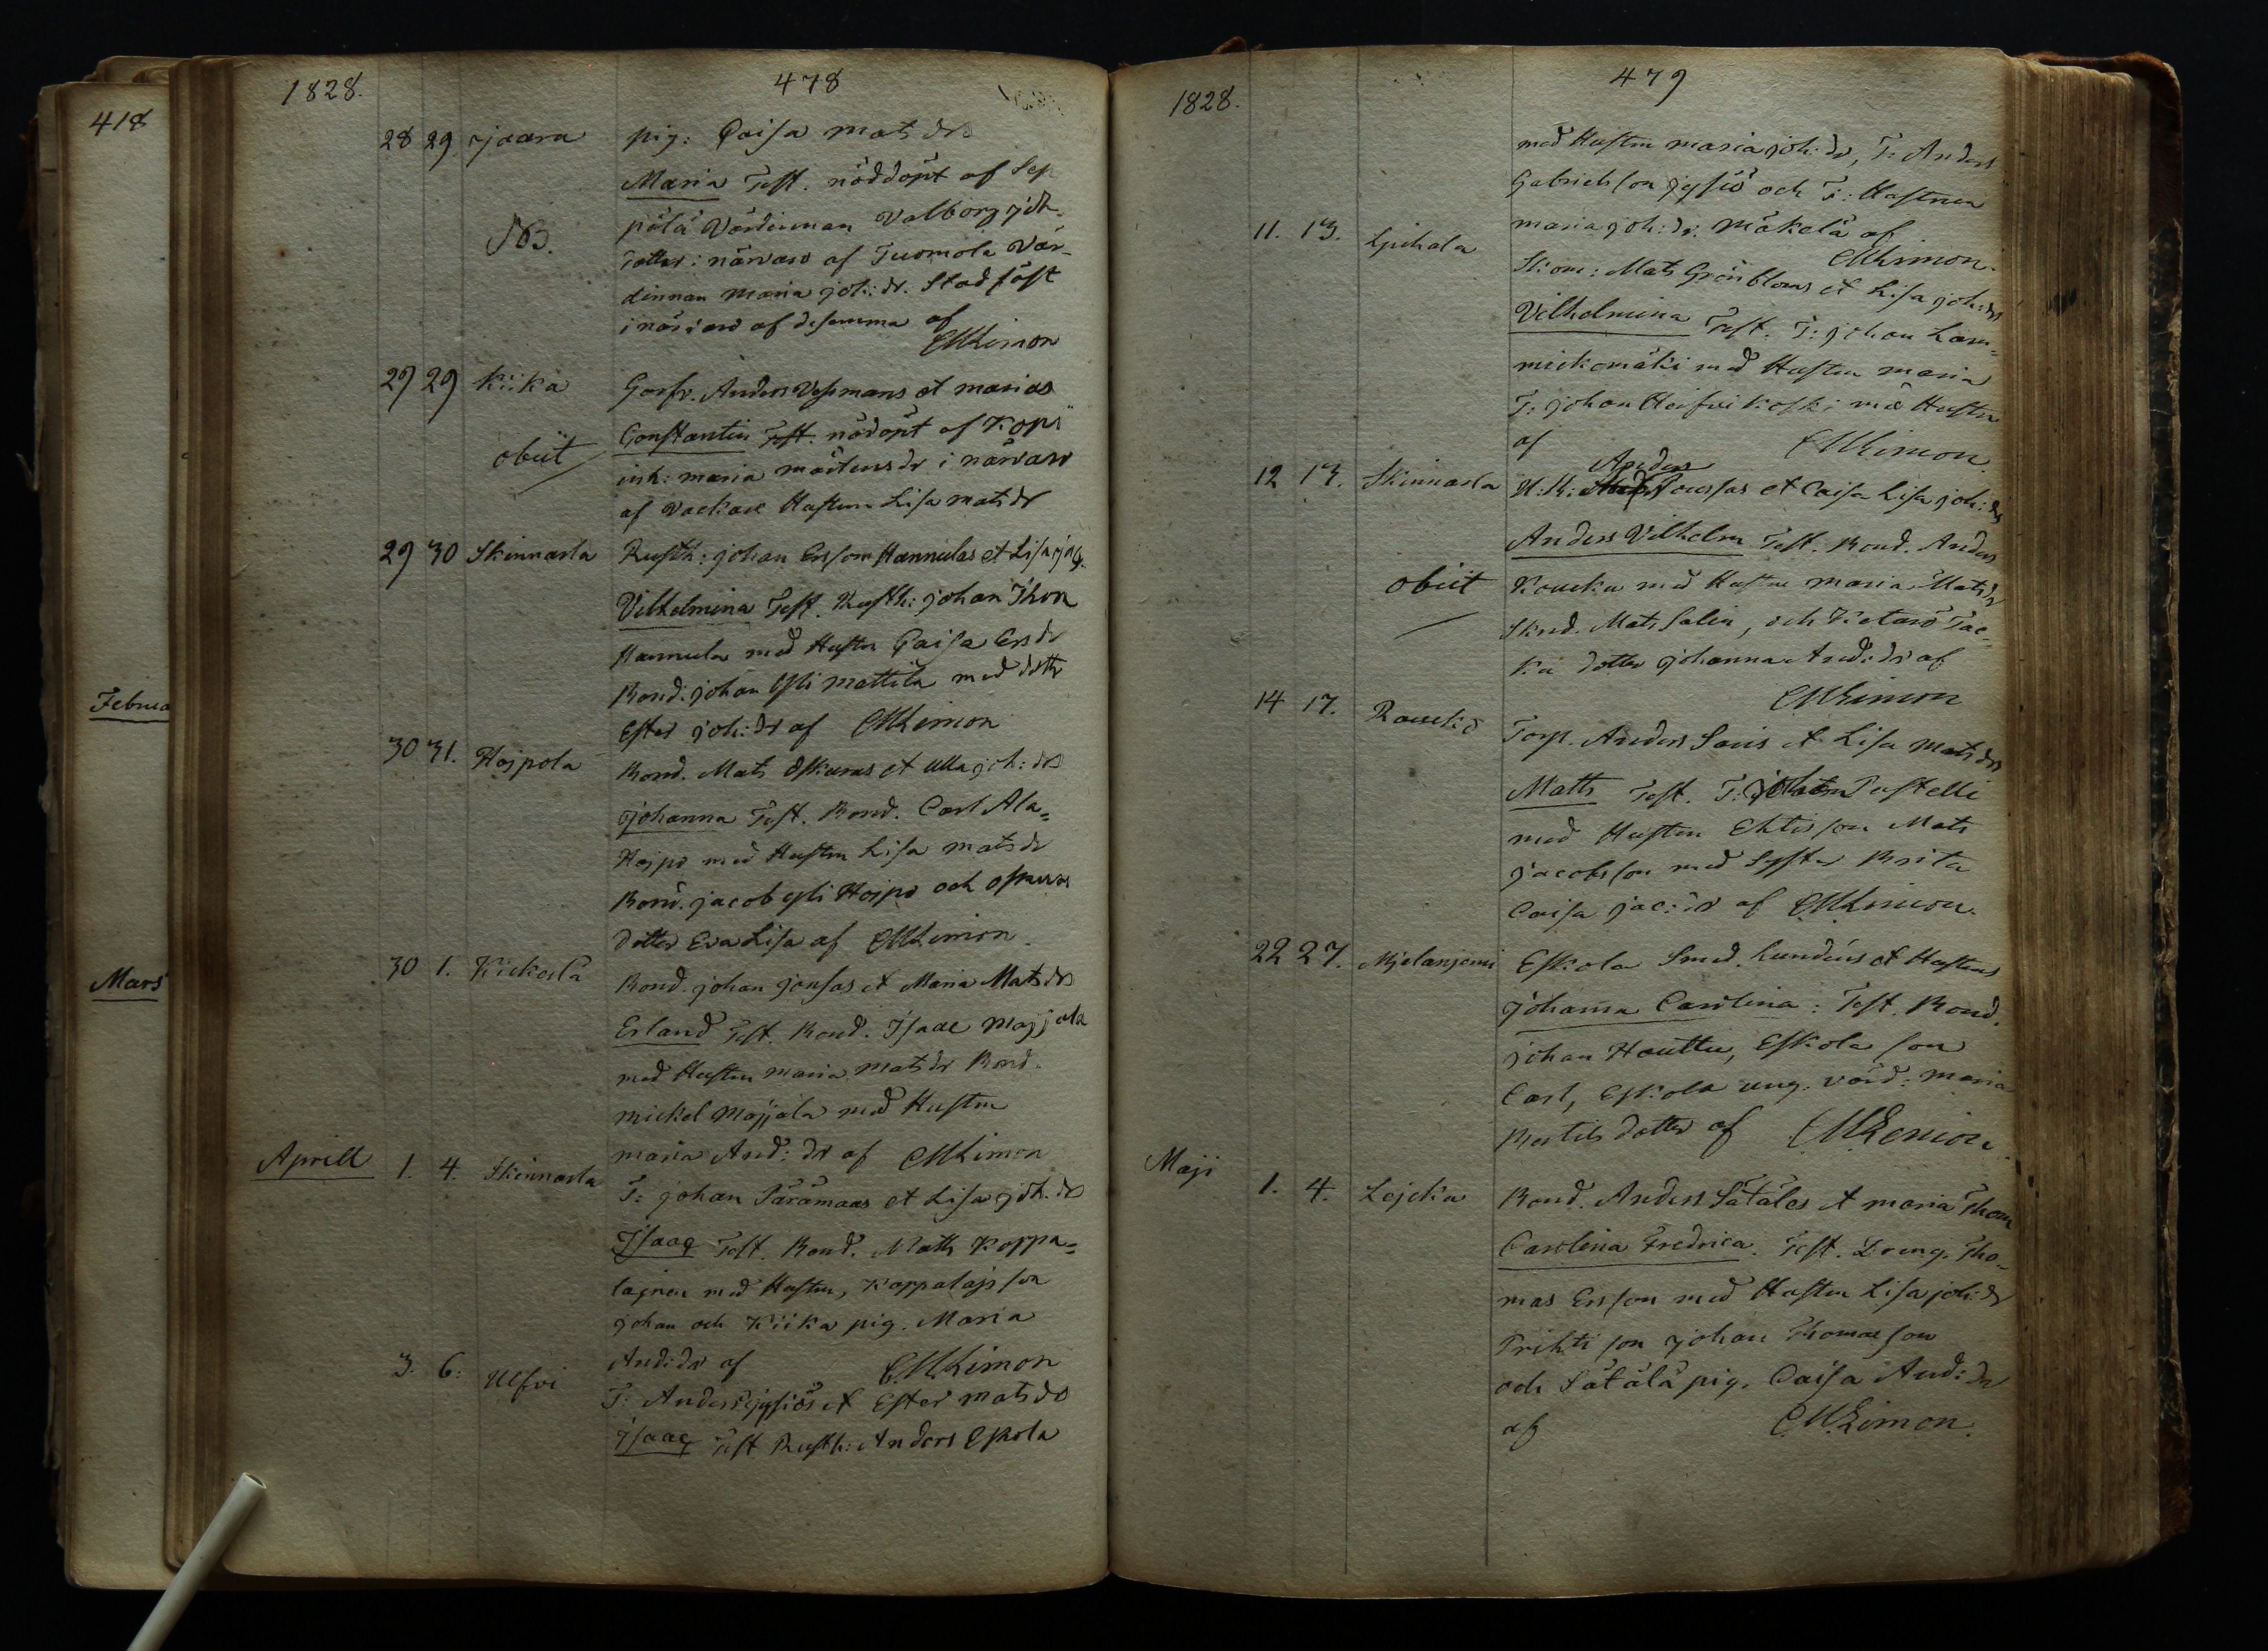 418
Februa
Mars
1828. 478
28 29 Jaara pig: Caisa Mats dr
Maria Test. nöddöpt af Sep
NB. pälä Värdinnan Valborg Joh.
dotter: närvaro af Tuomola Vär-
dinnan Maria joh: dr. Stadfäst
i närvaro af desamma af
CMLimon
29 29 Kiika Gorfv. Anders Vessmans et Marias
obiit Constantin Test. nödöpt af Kopi
inh: Maria Mårtensdr i närvaro
af Hustrun Lisa Matsdr
29 30 Skinnarla Rusth: johan Ersson Hannulas et Lisa jac
Vilhelmina Test. Rusth: johan Thon
Hannula med Hustru Caisa Ersdr
Bond: johan Ysti Mattila med dottr
Ester joh: dr af CMLimon
30 31. Hojpola Bond. Mats Oskaras et Ulla joh: drs
Johanna Test. Bond. Carl Ala=
Hojpo med Hustru Lisa Matsdr
Bond. jacob Ysti Hojpo och
dotter Eva Lisa af CMLimon.
30 1. Kickorla Bond. johan Jonsas et Maria Mats drs
Erland Test. Bond. Isaac Majjala
med Hustru Maria Matsdr Bond.
Mickel Majjala med Hustru
Maria And: dr af CMLimon
Aprill 1. 4. Skinnarla T: johan Särämaas et Lisa joh. drs
Isaaq Test. Bond. Matts Koppa=
lajnen med Hustru, Koppalajs son
johan och Kiika pig. Maria
And: dr af CMLimon
3. 6: Ulfvi T: Anders Jysiös et Ester Mats drs
Isaaq Test Rusth: Anders Eskola
1828. 479
med Hustru Maria joh: dr, T: Anders
Gabrielsson Jysiö och T: Hustrun
Maria joh: dr. Mäkelä af
CMLimon.
11. 13. Lyihala Skom: Mats Grönbloms et Lisa joh: drs
Vilhelmina Test. T: johan Lasu=
mickomäki med Hustru Maria
T: johan Heisvikoski med Hustru
af CMLimon.
Anders
12 13. Skinnarla N: K: Roussas et Caisa Lisa joh: drs
Anders Vilhelm Test. Bond. Anders
obiit Koucku med Hustru Maria Matsdr
Skrd. Mats Salin, och Ketarö Tac=
ku dotter Johanna And: dr af
CMLimon
14 17. Rouckö Torp. Anders Savis et Lisa Mats drs
Matts Test. T: Johan Pustelli
med Hustru Ehtis son Mats
jacobsson med Syster Brita
Caisa jac: dr af CMLimon.
22 27. Mjelanjemi Eskola Smed. Lundéns et Hustrus
Johanna Carolina: Test. Bond.
johan Houttu, Eskola son
Carl, Eskola ung. värd: Maria
Bertils dotter af CMLimon.
Maji 1. 4. Lejcka Bond. Anders Sätäles et Maria Thom
Carolina Fredrica. Test. Dreng. Tho=
mas Ersson med Hustru Lisa joh: dr
Prihti son johan Thomasson
och Sätälä pig. Caisa And: dr
af CMLimon.